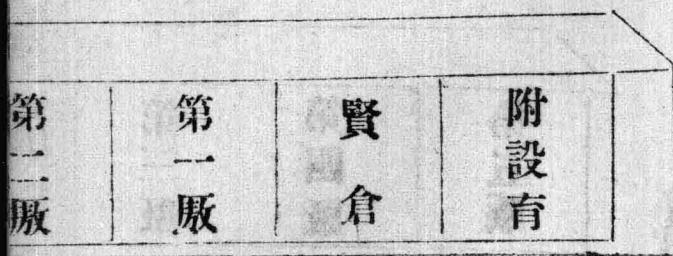 附設育
賢倉
第一厫
第二厫